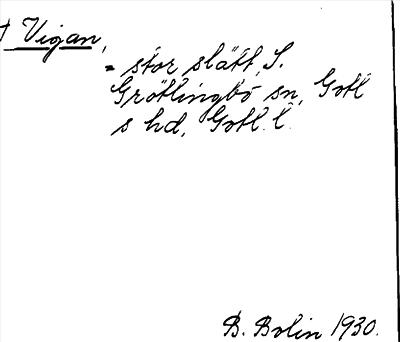 † Vigan,
= stor slätt, S.
Grötlingbo sn, Gotl
s hd, Gotl. l.
B. Bolin 1930.